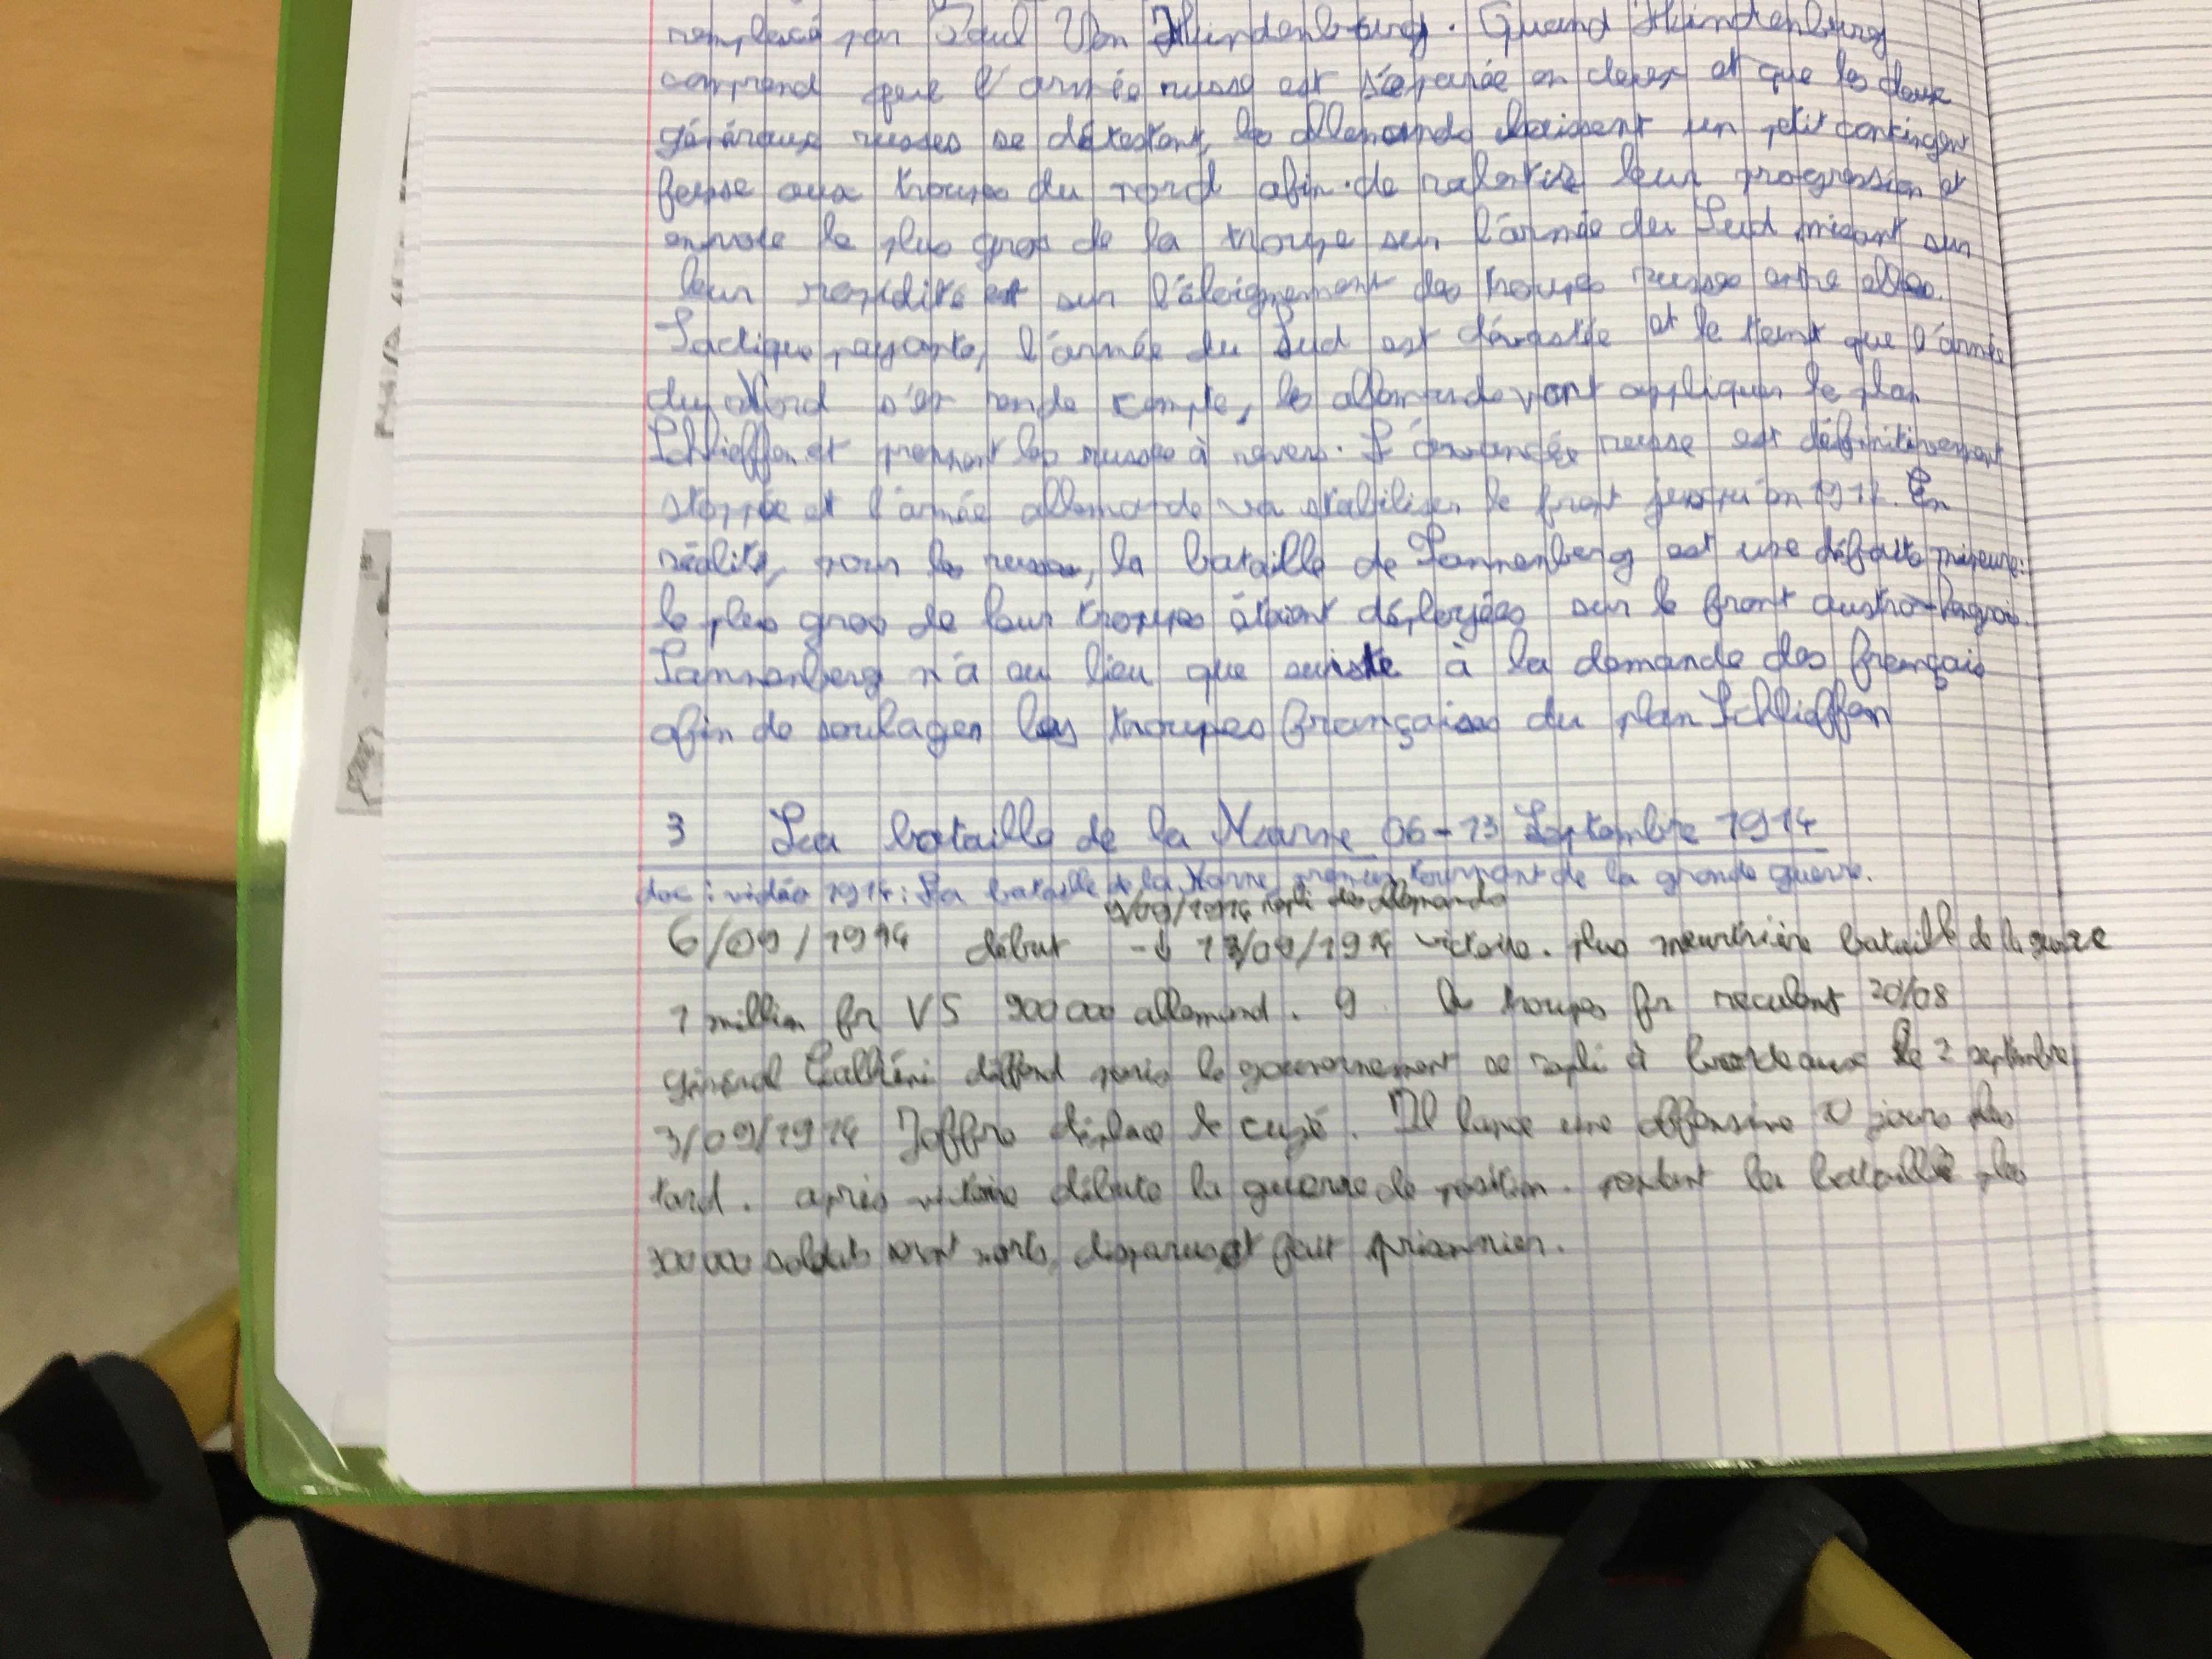 remplacé par Paul Von Hindenburg. Quand Hindenburg
comprend que l'armée russe est séparée en deux et que les deux
généraux russes se détestent, les allemands laissent un petit contingent
fasse aux troupes du nord afin de ralentir leur progression et
envoie le plus gros de la troupe sur l'armée du Sud misant sur
leur rapidité et sur l'éloignement des troupes russes entre elles.
Tactique payante, l'armée du Sud est dévastée et le temt que l'armée
du Nord s'en rende compte, les allemands vont appliquer le plan
Schlieffen et prennent les russes à revers. L'avancée russe est définitivement
stoppée et l'armée allemande va stabiliser le front jusqu'en 1917. En
réalité, pour les russes, la bataille de Tannenberg est une défaite mineure:
le plus gros de leur troupes étaient déployées sur le front austro-hongrois.
Tannenberg n'a eu lieu que suiste à la demande des français
afin de soulager les troupes françaises du plan Schlieffen
3 La bataille de la Marne 06-13 Septembre 1914
doc : vidéo 1914 : La bataille de la Marne premier tournant de la grande guerre.
9/09/1914 repli des allemands
6/09/1914 début -↓ 13/09/1914 victoire. plus meurtrière bataille de la guerre
1 million fr VS 900 000 allemand. 9 les troupes fr reculent 20/08
général Galliéni déffend paris le gouvernement se repli à bordeaux le 2 septembre
3/09/1914 Joffre déplace le Il lance une offensive jours plus
tard. après victoire débute la guerre de position. pendant la bataille plus
300 000 soldats sont morts, disparus et fait prisonnier.